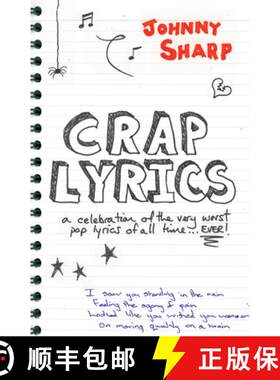 JOHNNY
SHARP
CRAP
LYRICS
a celebration of the very worst
pop lyrics of all time... EVER!
I saw you standing in the rain
Feeling the agony & pain
Looked like you wished you were on
On moving quickly on a train
顺丰包邮 全新正版